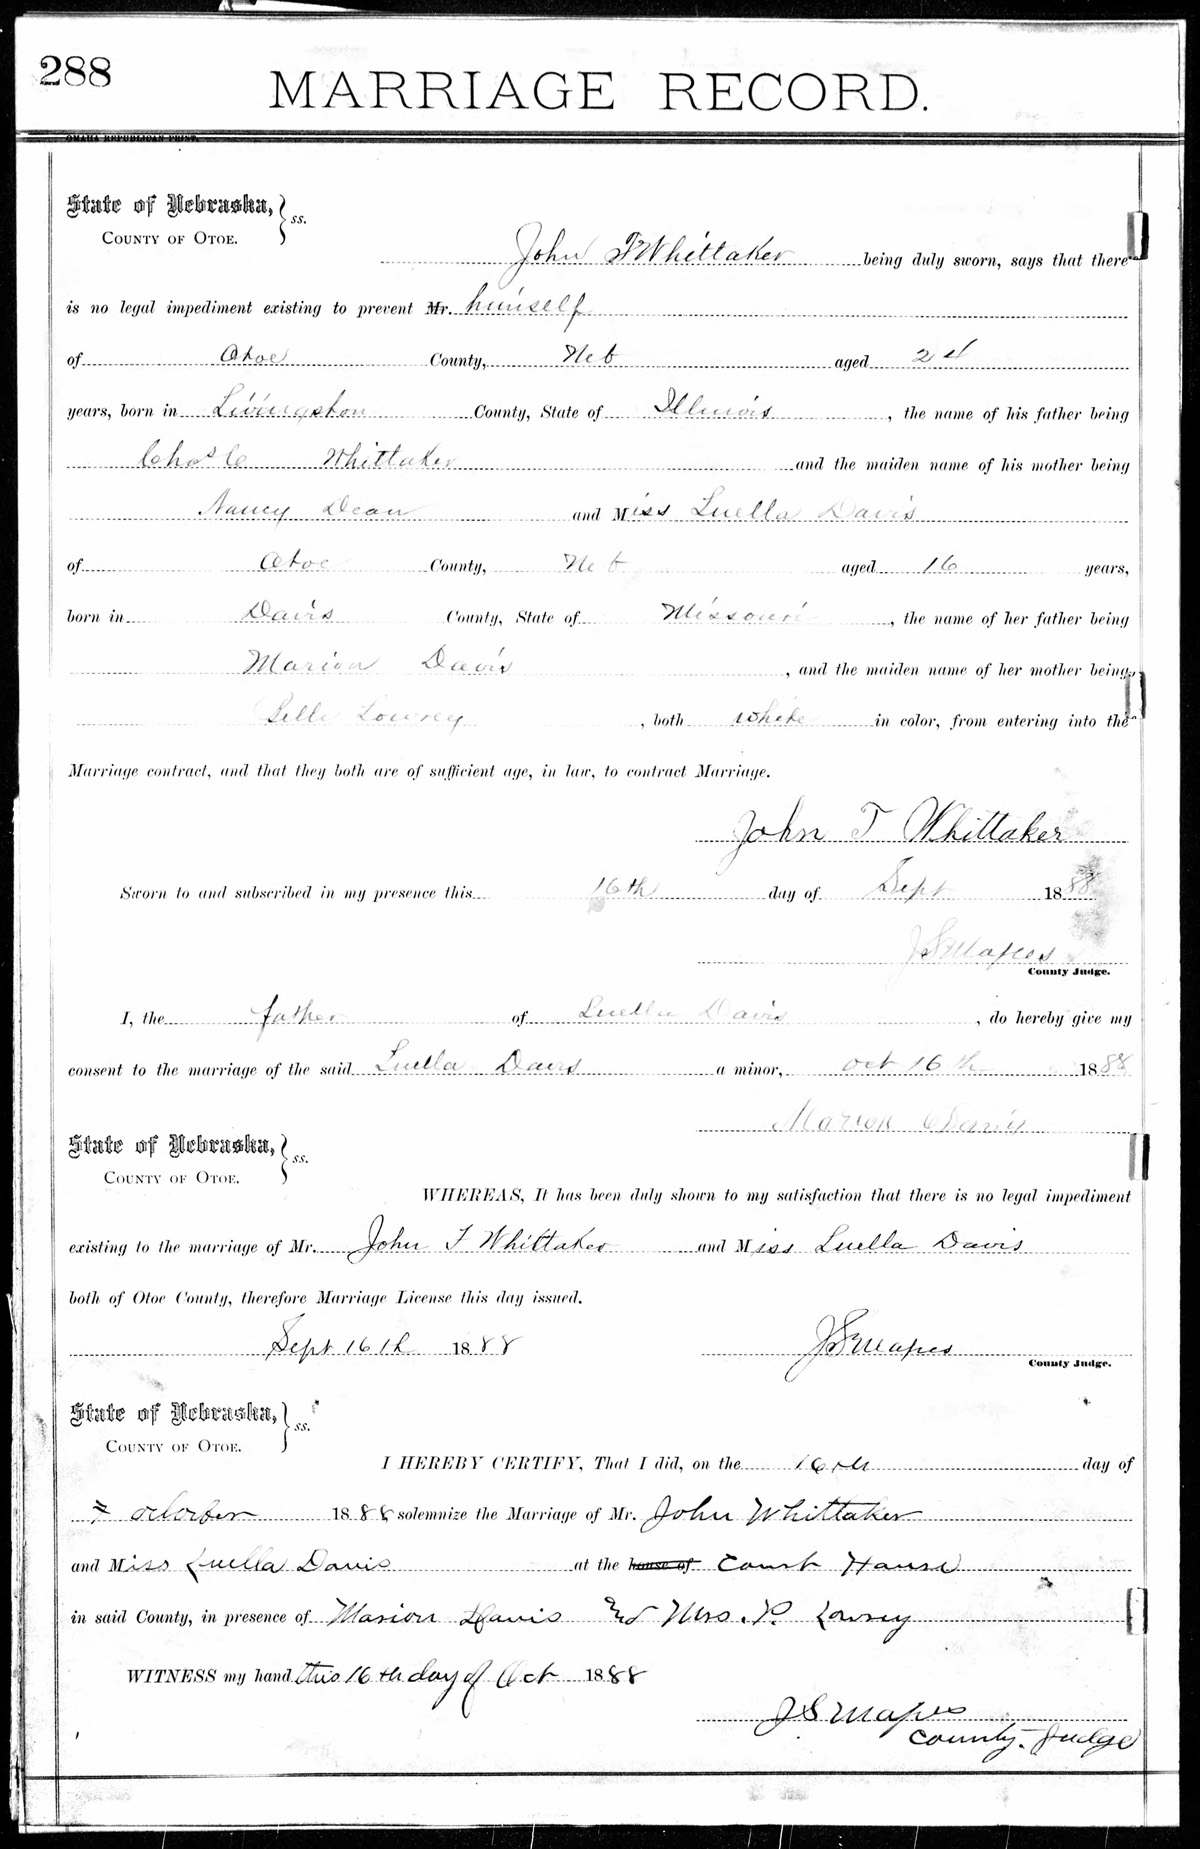 288
MARRIAGE RECORD.
OMAHA REPUBLICAN PRINT.
State of Nebraska, } ss.
COUNTY OF OTOE.
John T Whittaker being duly sworn, says that there
is no legal impediment existing to prevent Mr. himself
of Otoe County, Neb aged 24
years, born in Livingston County, State of Illinois, the name of his father being
Chas C Whittaker and the maiden name of his mother being
Nancy Dean and Miss Luella Davis
of Otoe County, Neb aged 16 years,
born in Davis County, State of Missouri, the name of her father being
Marion Davis, and the maiden name of her mother being
Belle Lowrey, both white in color, from entering into the
Marriage contract, and that they both are of sufficient age, in law, to contract Marriage.
John T Whittaker
Sworn to and subscribed in my presence this 16th day of Sept 1888
J S Mapes
County Judge.
I, the father of Luella Davis, do hereby give my
consent to the marriage of the said Luella Davis a minor, Oct 16th 1888
Marion Davis
State of Nebraska, } ss.
COUNTY OF OTOE.
WHEREAS, It has been duly shown to my satisfaction that there is no legal impediment
existing to the marriage of Mr. John T Whittaker and Miss Luella Davis
both of Otoe County, therefore Marriage License this day issued.
Sept 16th 1888 J S Mapes
County Judge.
State of Nebraska, } ss.
COUNTY OF OTOE.
I HEREBY CERTIFY, That I did, on the 16th day of
October 1888 solemnize the Marriage of Mr. John Whittaker
and Miss Luella Davis at the house of Court House
in said County, in presence of Marion Davis and Mrs. P. Lowrey
WITNESS my hand this 16th day of Oct 1888
J S Mapes
County Judge